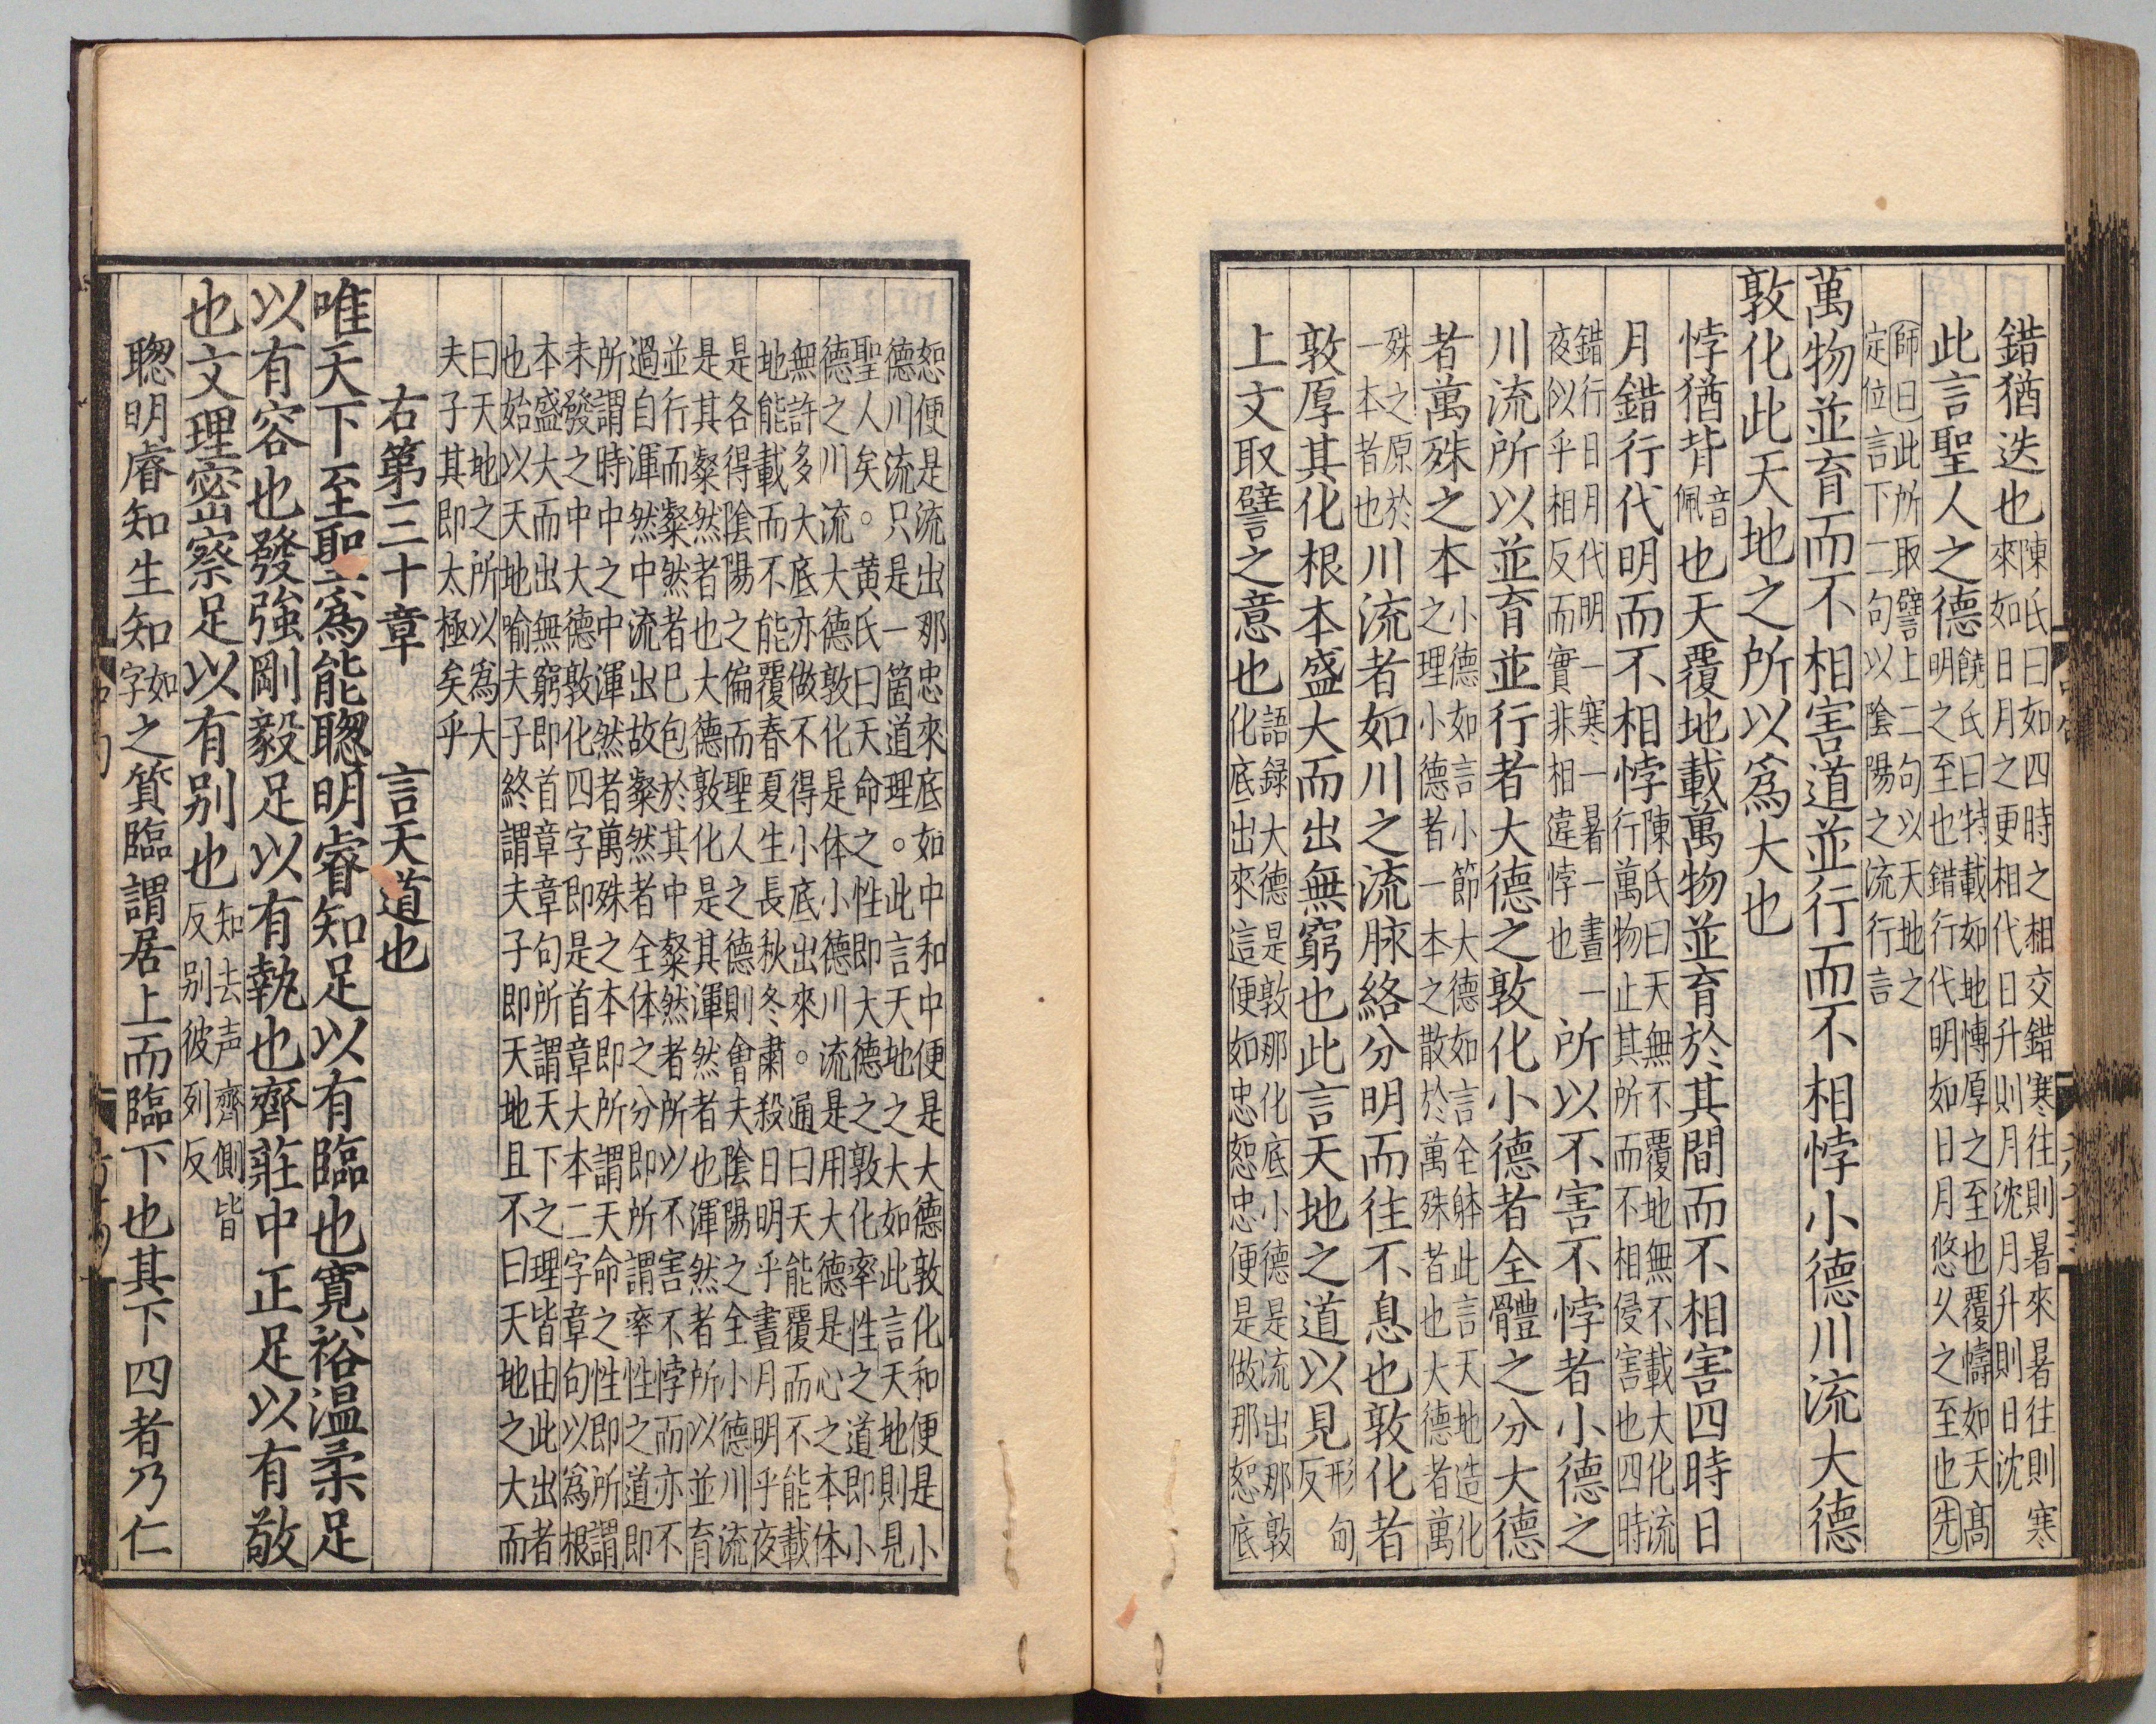 錯猶迭也陳氏曰如四時之相交錯寒往則暑來暑往則寒
來如日月之更相代日升則月沈月升則日沈
此言聖人之德饒氏曰特載如地慱厚之至也覆幬如天髙
明之至也錯行代明如日月悠乆之至也先
師曰此所取譬上二句以天地之
定位言下二句以陰陽之流行言
萬物並育而不相害道並行而不相悖小德川流大德
敦化此天地之所以爲大也
悖猶背音佩也天覆地載萬物並育於其間而不相害四時日
月錯行代明而不相悖陳氏曰天無不覆地無不載大化流
行萬物止其所而不相侵害也四時
錯行日月代明一寒一暑一晝一
夜似乎相反而實非相違悖也所以不害不悖者小德之
川流所以並育並行者大德之敦化小德者全體之分大德
者萬殊之本小德如言小節大德如言全躰此言天地造化
之理小德者一本之散於萬殊者也大德者萬
殊之原於
一本者也川流者如川之流脉絡分明而往不息也敦化者
敦厚其化根本盛大而出無窮也此言天地之道以見形甸反
上文取譬之意也語録大德是敦那化底小德是流出那敦
化底出來這便如忠恕忠便是做那恕底
恕便是流出那忠來底如中和中便是大德敦化和便是小
德川流只是一箇道理。此言天地之大如此言天地則見
聖人矣。黄氏曰天命之性即大德之敦化率性之道即小
德之川流大德敦化是体小德川流是用大德是心之本体
無許多大底亦做不得小底出來。通曰天能覆而不能載
地能載而不能覆春夏生長秋冬肅殺日明乎晝月明乎夜
是各得陰陽之偏而聖人之德則會夫陰陽之全小德川流
是其粲然者也大德敦化是其渾然者也渾然者所以並育
並行而粲然者已包於其中粲然者所以不害不悖而亦不
過自渾然中流出故粲然者全体之分即所謂率性之道即
所謂時中之中渾然者萬殊之本即所謂天命之性即所謂
未發之中大德敦化四字即是首章大本二字章句以爲根
本盛大而出無窮即首章章句所謂天下之理皆由此出者
也始以天地喻夫子終謂夫子即天地且不曰天地之大而
曰天地之所以爲大
夫子其即太極矣乎
右第三十章　言天道也
唯天下至聖爲能聦明睿知足以有臨也寛裕温柔足
以有容也發強剛毅足以有執也齊莊中正足以有敬
也文理宻察足以有别也知去声齊側皆
反别彼列反
聦明睿知生知如字之質臨謂居上而臨下也其下四者乃仁